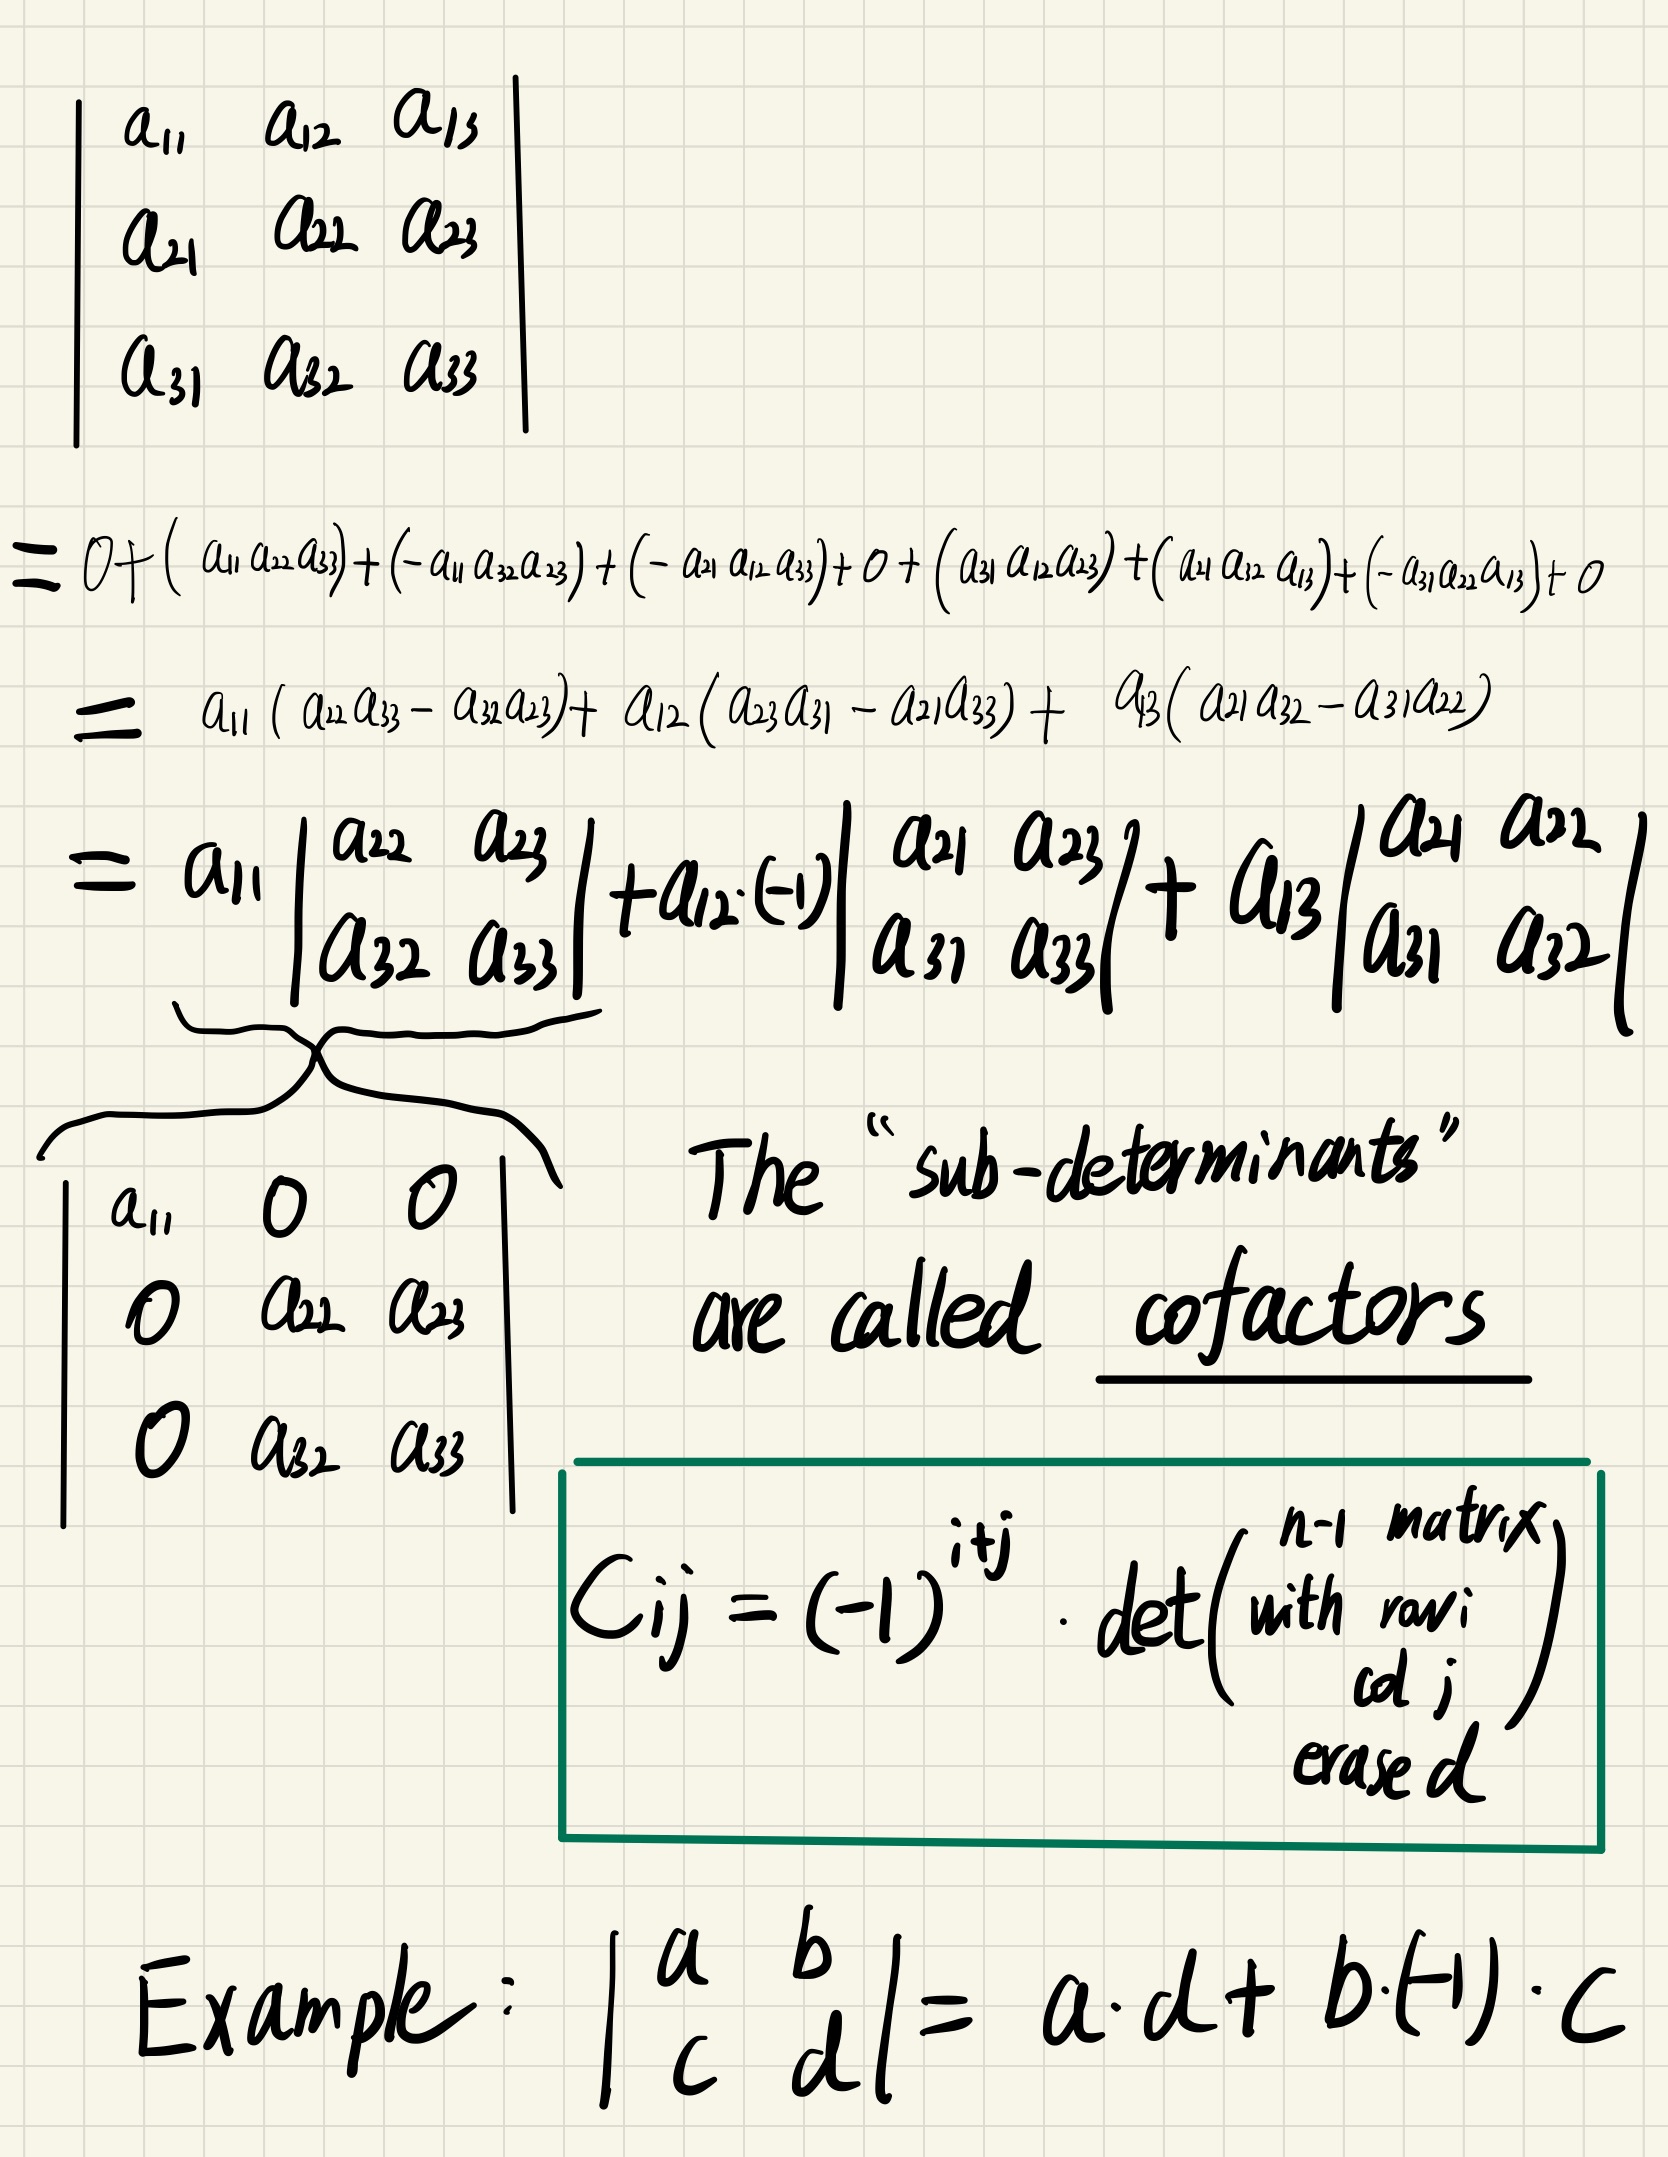 | a₁₁ a₁₂ a₁₃ |
| a₂₁ a₂₂ a₂₃ |
| a₃₁ a₃₂ a₃₃ |
= 0 + ( a₁₁ a₂₂ a₃₃ ) + ( - a₁₁ a₃₂ a₂₃ ) + ( - a₂₁ a₁₂ a₃₃ ) + 0 + ( a₃₁ a₁₂ a₂₃ ) + ( a₂₁ a₃₂ a₁₃ ) + ( - a₃₁ a₂₂ a₁₃ ) + 0
= a₁₁ ( a₂₂ a₃₃ - a₃₂ a₂₃ ) + a₁₂ ( a₂₃ a₃₁ - a₂₁ a₃₃ ) + a₁₃ ( a₂₁ a₃₂ - a₃₁ a₂₂ )
= a₁₁ | a₂₂ a₂₃ | + a₁₂ · (-1) | a₂₁ a₂₃ | + a₁₃ | a₂₁ a₂₂ |
| a₃₂ a₃₃ | | a₃₁ a₃₃ | | a₃₁ a₃₂ |
| a₁₁ 0 0 |
| 0 a₂₂ a₂₃ |
| 0 a₃₂ a₃₃ |
The “sub-determinants”
are called cofactors
Cij = (-1)^{i+j} · det ( n-1 matrix
with row i
col j
erased )
Example : | a b | = a · d + b · (-1) · c
| c d |